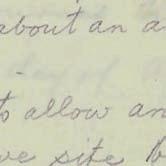 about an a
to allow an
ve site b